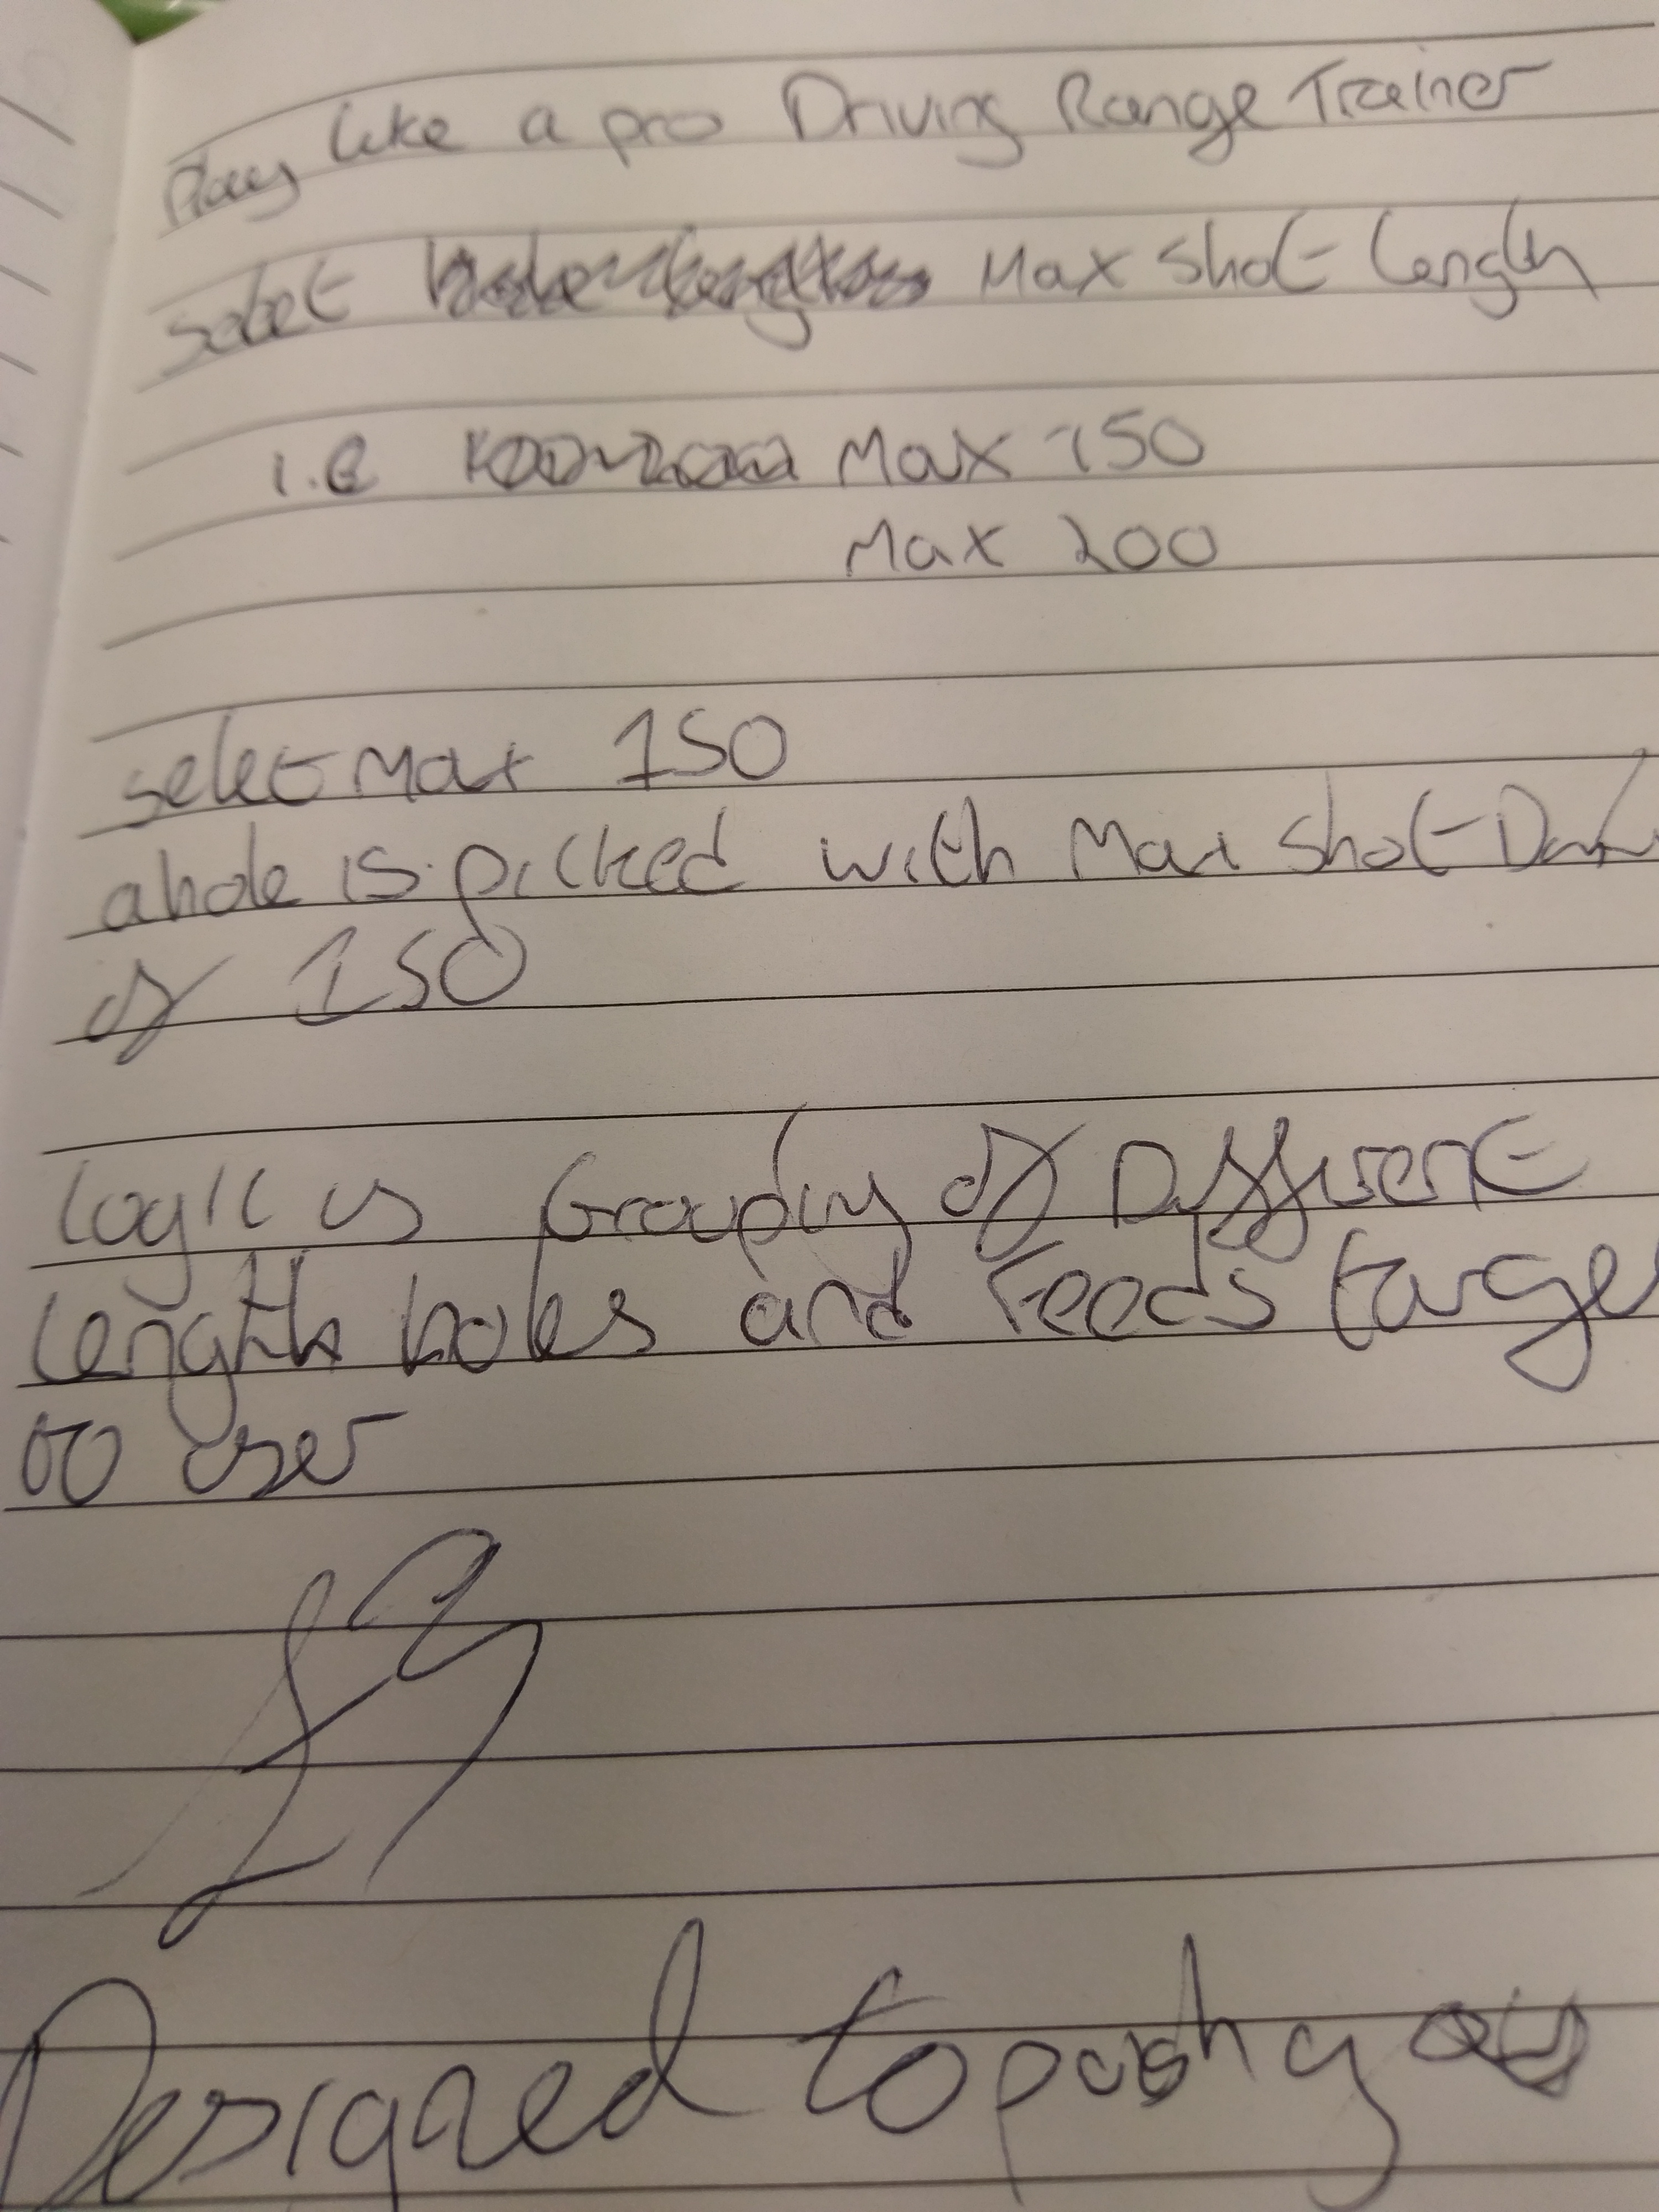 Play like a pro Driving Range Trainer
select Max shot length
i.e Max 150
Max 200
select Max 150
a hole is picked with Max shot
of 150
logic is Grouping of Different
length holes and Feeds targe
to user
Designed to push you